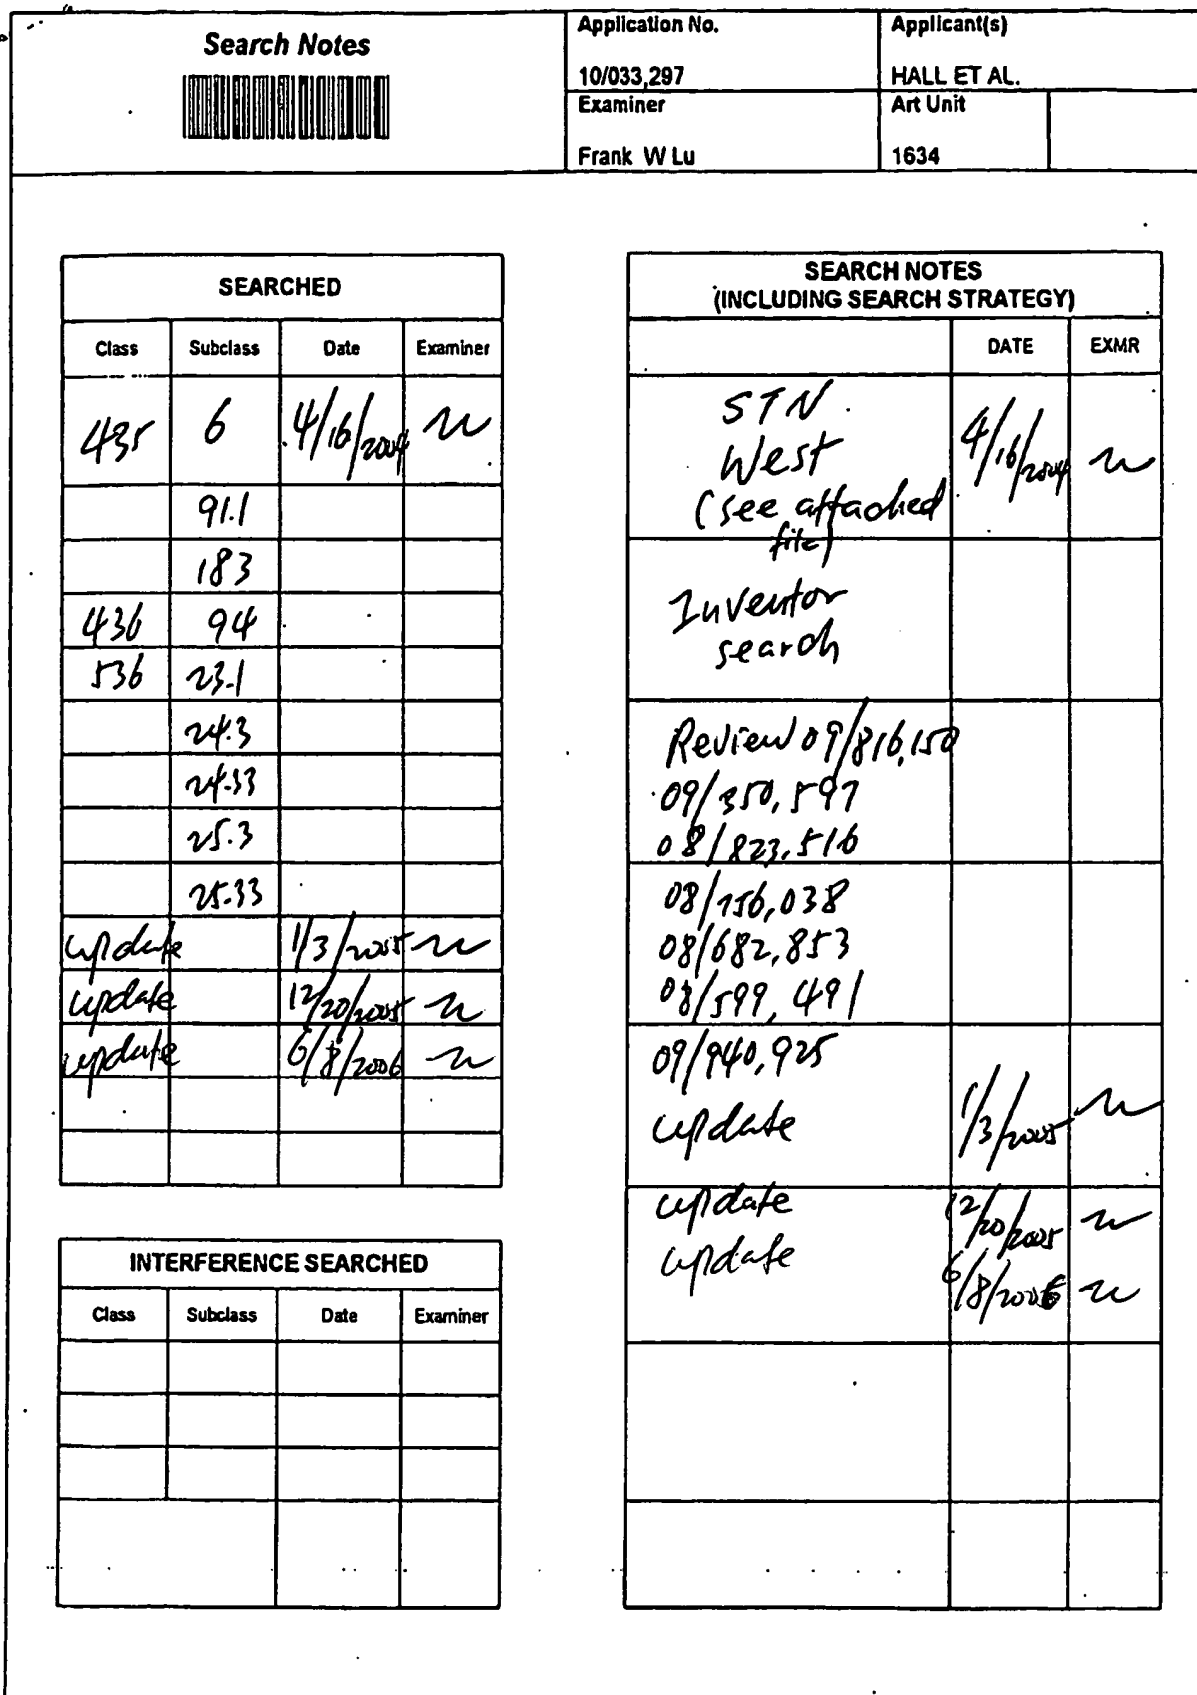 Search Notes
Application No.
10/033,297
Applicant(s)
HALL ET AL.
Examiner
Frank W Lu
Art Unit
1634
SEARCHED
Class Subclass Date Examiner
435 6 4/16/2004
91.1
183
436 94
536 23.1
24.3
24.33
25.3
25.33
update 1/3/2005
update 12/20/2005
update 6/8/2006
INTERFERENCE SEARCHED
Class Subclass Date Examiner
SEARCH NOTES
(INCLUDING SEARCH STRATEGY)
DATE EXMR
STN
West 4/16/2004
(see attached
file)
Inventor
search
Review 09/816,150
09/350,597
08/823,516
08/756,038
08/682,853
08/599,491
09/940,925
update 1/3/2005
update 12/20/2005
update 6/8/2006